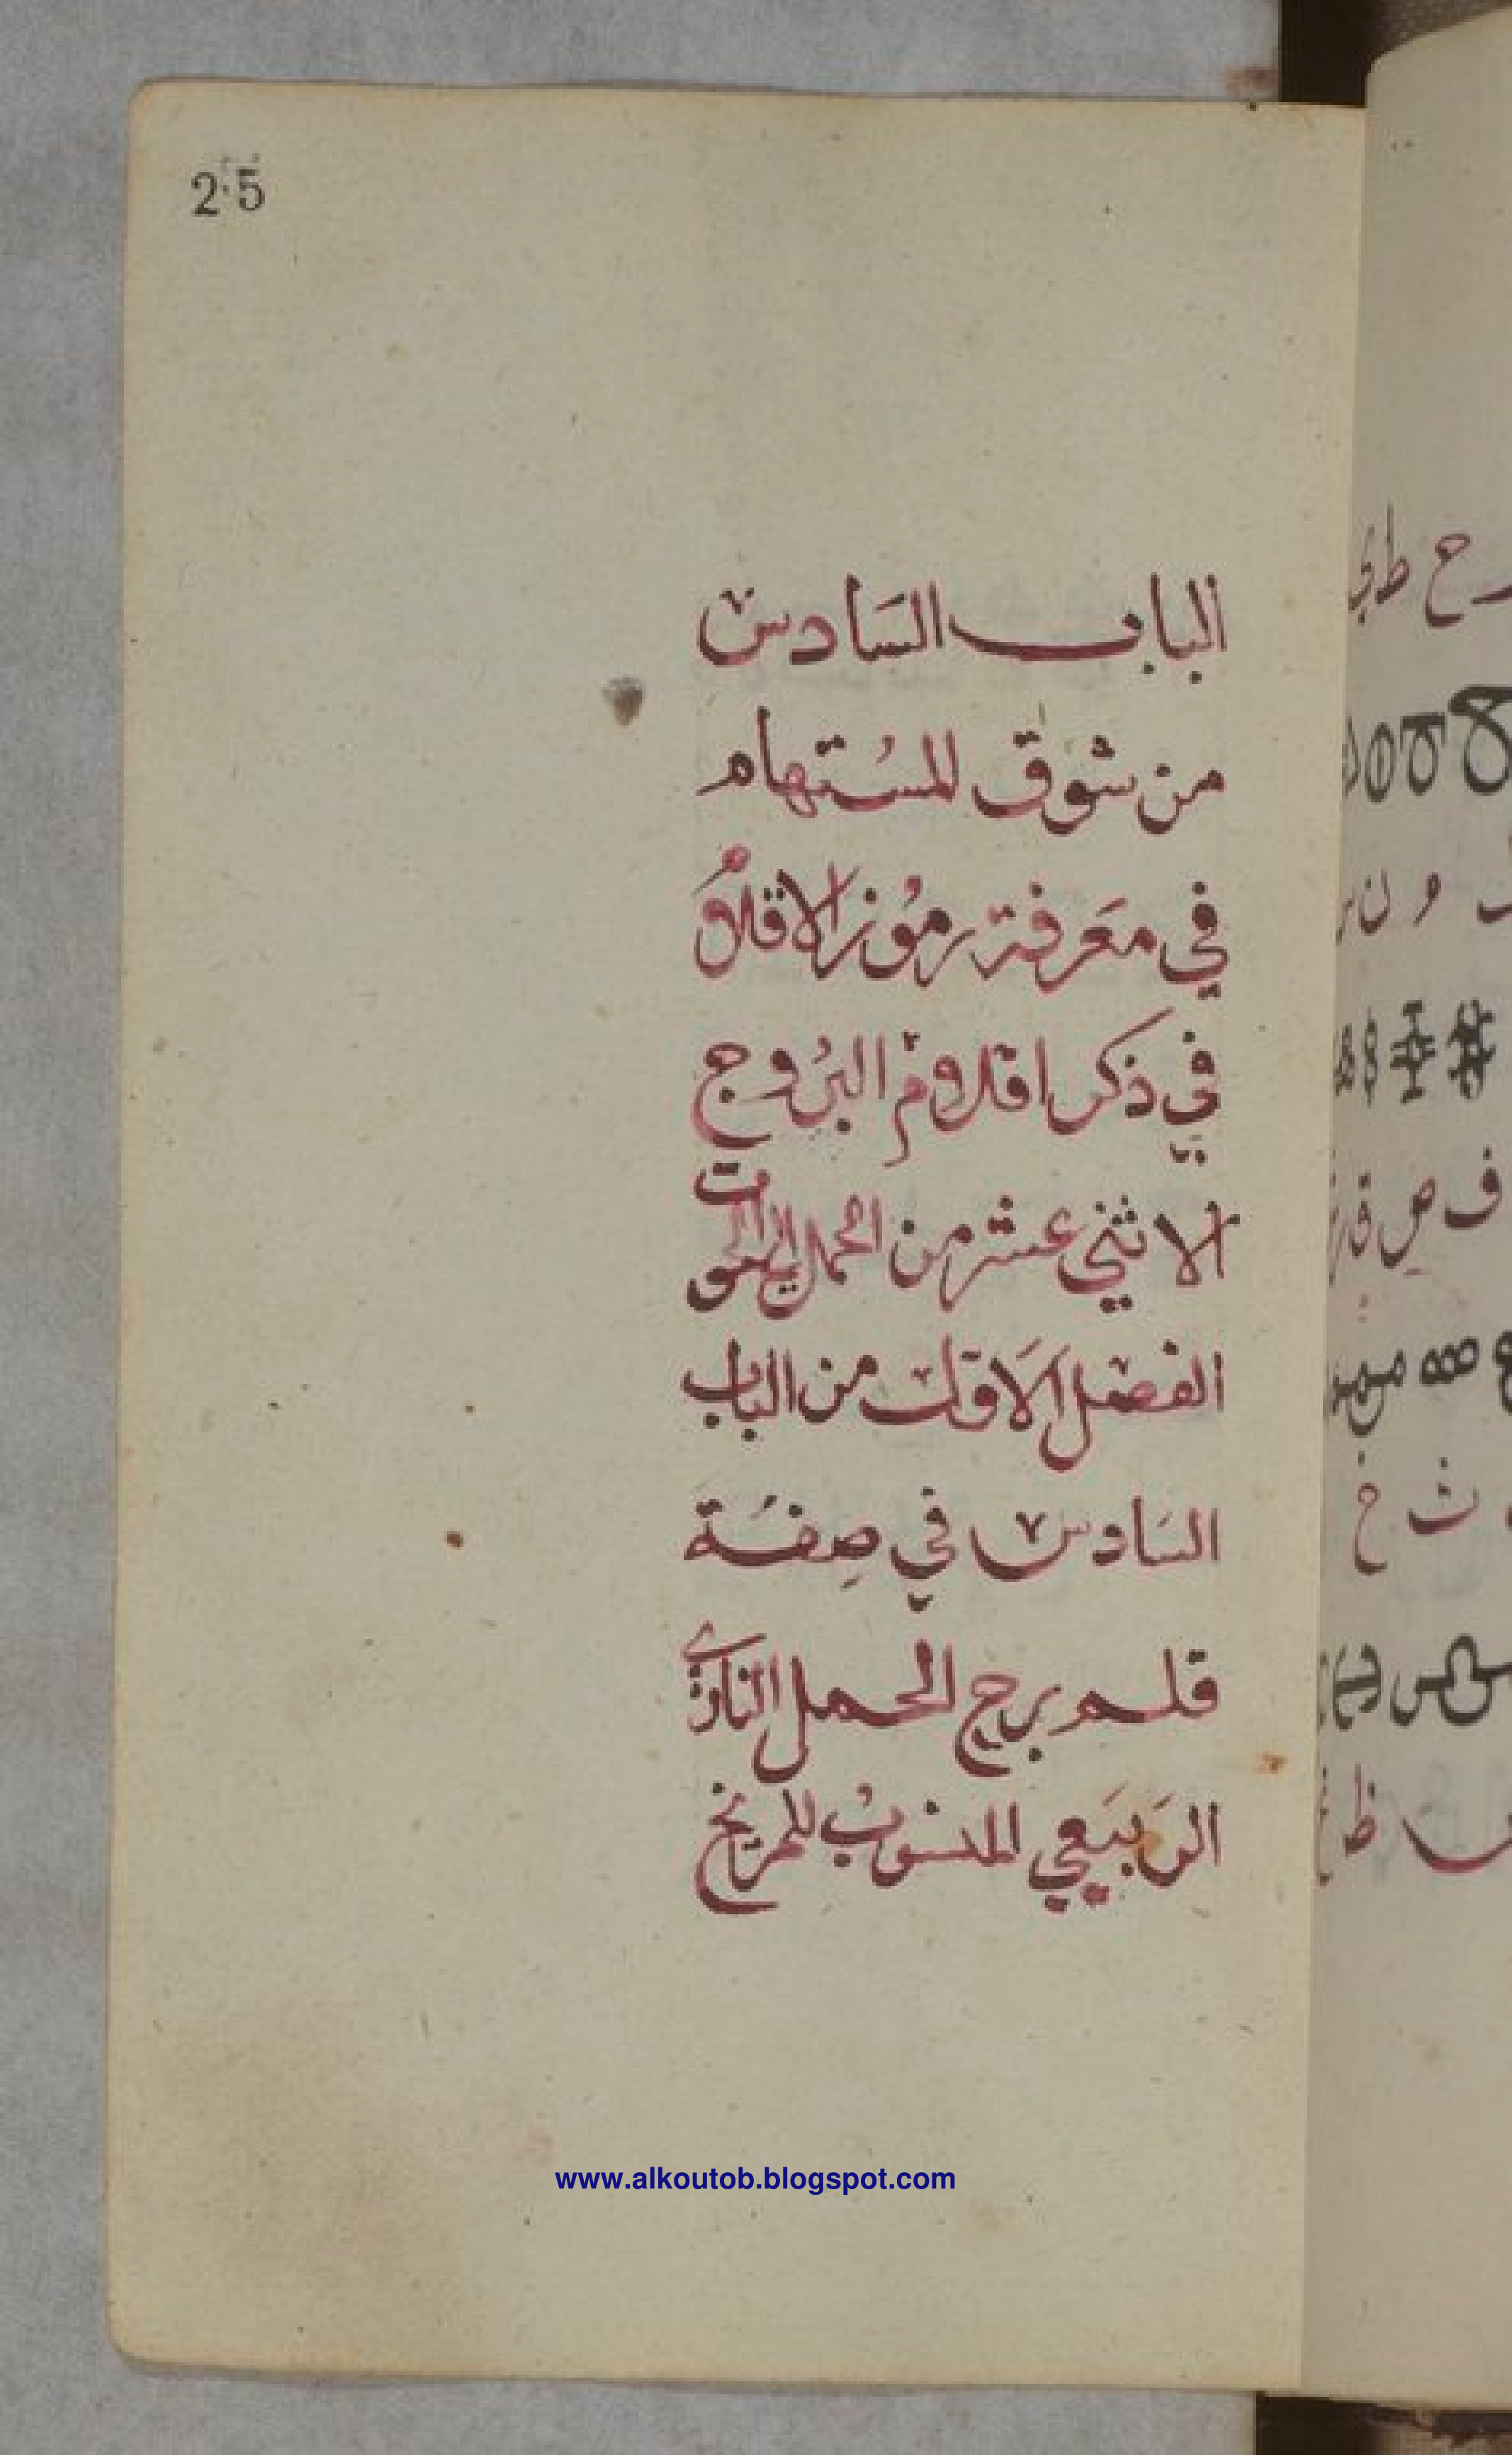 25
الباب السَادس
من شوق المسُتهام
في معَرفة رمُوز الاقلام
في ذكر اقلام البرُوج
الاثني عشر من الحمل الى الحوت
الفصل الاَول من الباب
السَادس في صِفَة
قلم برج الحمل الناري
الرَبيَعي المنسُوب للمريخ
www.alkoutob.blogspot.com
ح ط ي
ف ص ق
ث خ